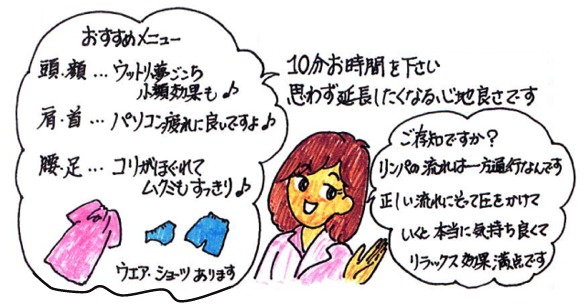 おすすめメニュー
頭・顔…ウットリ夢ごこち
小顔効果も♪
肩・首…パソコン疲れに良いですよ♪
腰・足…コリがほぐれて
ムクミもすっきり♪
ウエア・ショーツあります
10分お時間を下さい
思わず延長したくなる心地良さです
ご存知ですか?
リンパの流れは一方通行なんです
正しい流れにそって圧をかけて
いくと本当に気持ち良くて
リラックス効果満点です